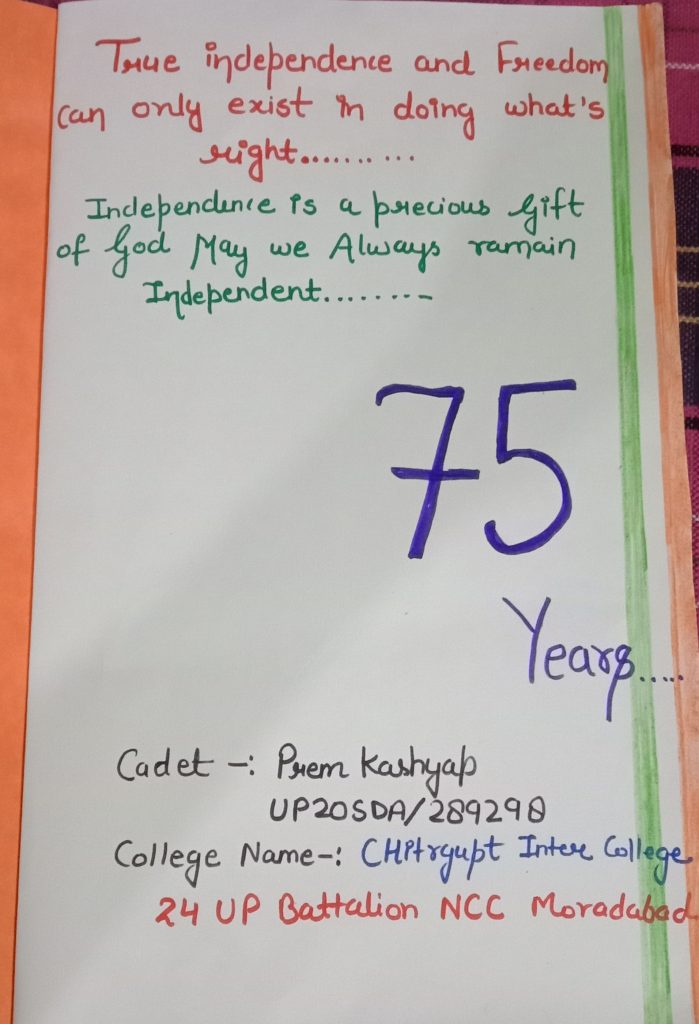 True independence and Freedom
can only exist in doing what's
right..........
Independence is a precious Gift
of God May we Always ramain
Independent........
75
Years.....
Cadet -: Prem Kashyap
UP20SDA/289298
College Name-: CHitrgupt Inter College
24 UP Battalion NCC Moradabad